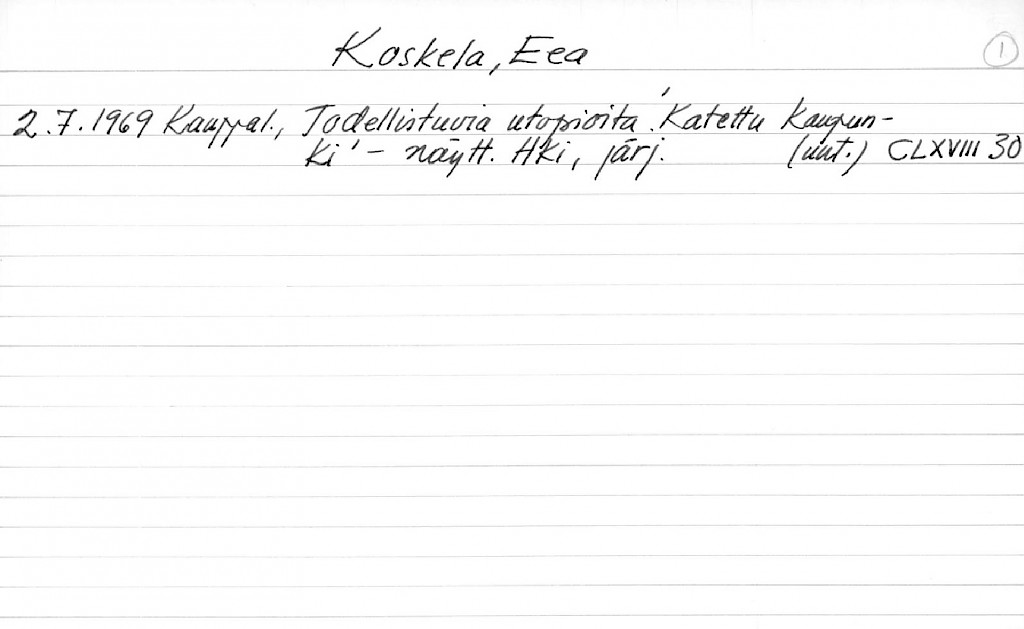 Koskela, Eea
1
2.7.1969 Kauppal., Todellistuvia utopioita. 'Katettu kaupun-
ki' - näytt. Hki, järj. (uut.) CLXVIII 30